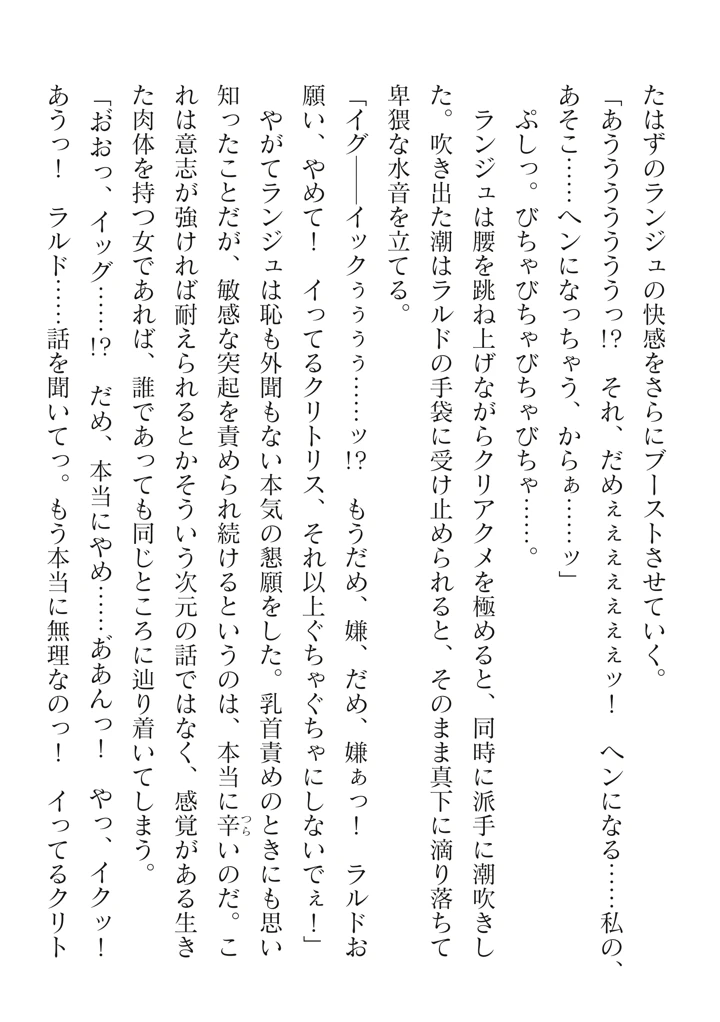 たはずのランジュの快感をさらにブーストさせていく。
「あううううううっ!?　それ、だめぇぇぇぇぇぇッ！　ヘンになる……私の、
あそこ……ヘンになっちゃう、からぁ……ッ」
ぷしっ。びちゃびちゃびちゃびちゃ……。
ランジュは腰を跳ね上げながらクリアクメを極めると、同時に派手に潮吹きし
た。吹き出た潮はラルドの手袋に受け止められると、そのまま真下に滴り落ちて
卑猥な水音を立てる。
「イグ――イックぅぅぅぅ……ッ!?　もうだめ、嫌、だめ、嫌ぁっ！　ラルドお
願い、やめて！　イってるクリトリス、それ以上ぐちゃぐちゃにしないでぇ！」
やがてランジュは恥も外聞もない本気の懇願をした。乳首責めのときにも思い
知ったことだが、敏感な突起を責められ続けるというのは、本当に辛いのだ。こ
つら
れは意志が強ければ耐えられるとかそういう次元の話ではなく、感覚がある生き
た肉体を持つ女であれば、誰であっても同じところに辿り着いてしまう。
「お゙おっ、イッグ……!?　だめ、本当にやめ……あ゙あんっ！　やっ、イクッ！
あうっ！　ラルド……話を聞いてっ。もう本当に無理なのっ！　イってるクリト